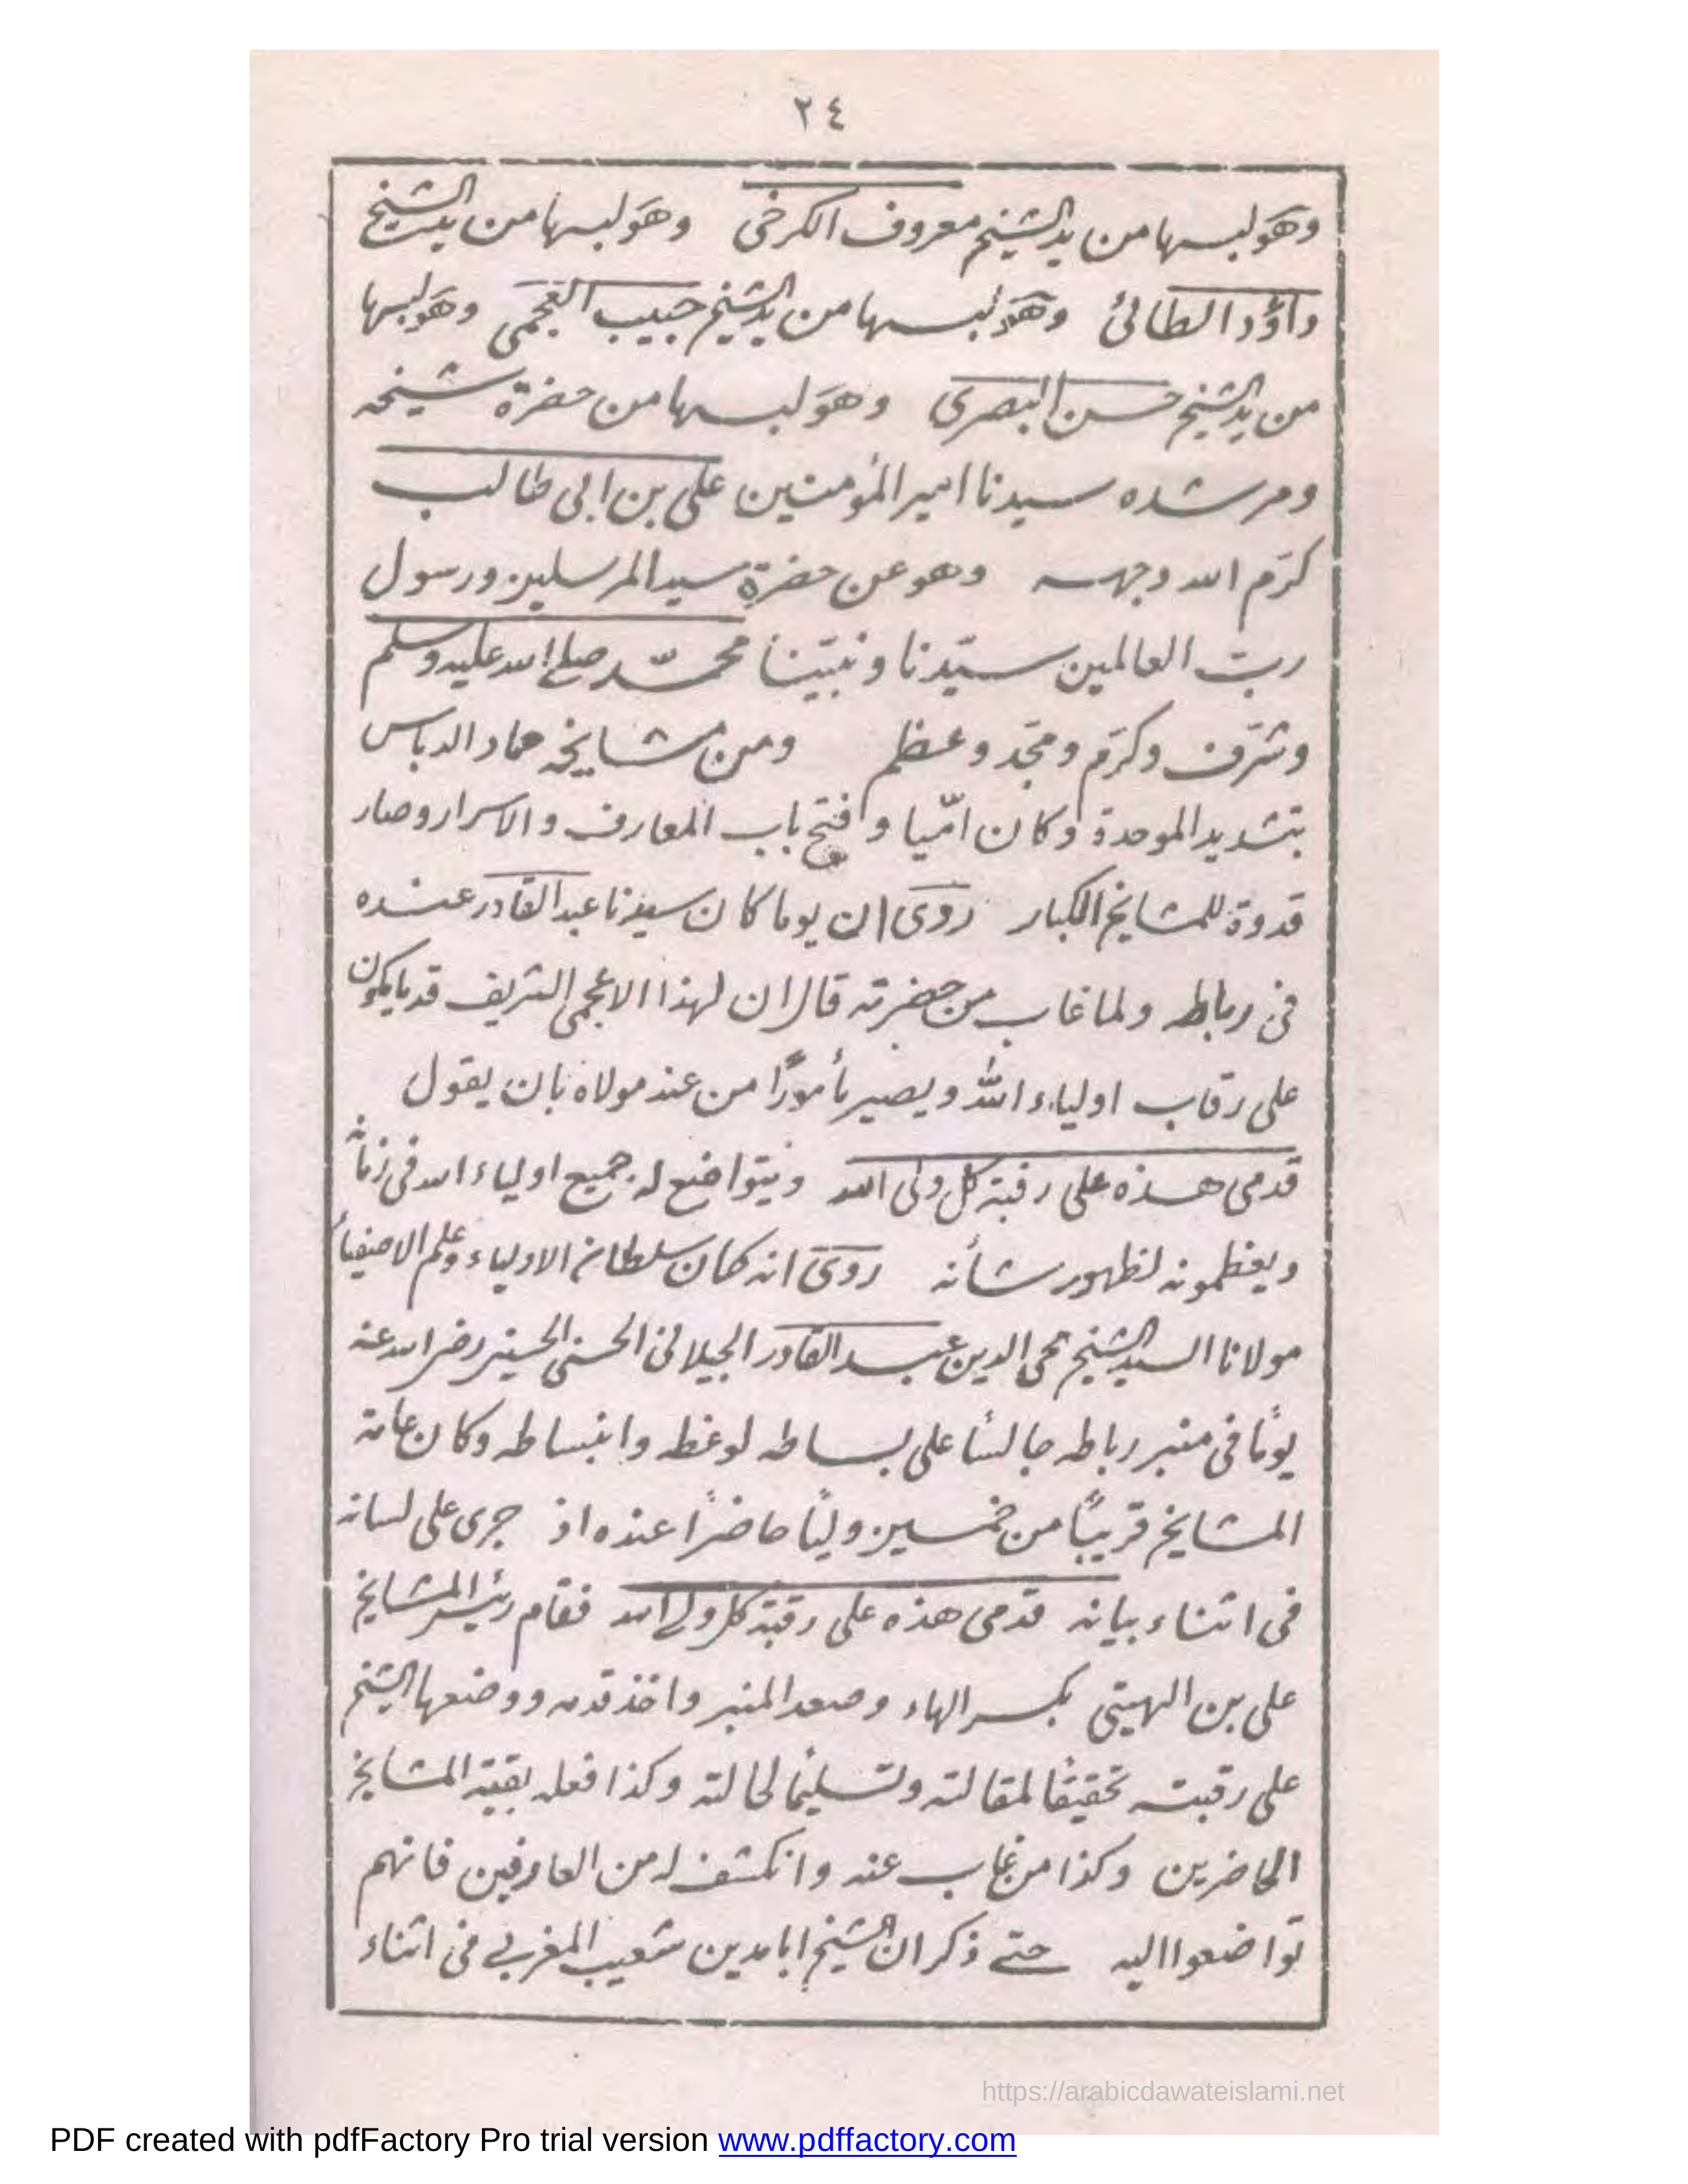 ٢٤
وهو لبسها من يد الشيخ معروف الكرخى وهو لبسها من يد الشيخ
داؤد الطائى وهو لبسها من يد الشيخ حبيب العجمى وهو لبسها
من يد الشيخ حسن البصرى وهو لبسها من حضرة شيخه
ومرشده سيدنا امير المؤمنين على بن ابى طالب
كرّم الله وجهه وهو عن حضرة سيد المرسلين ورسول
ربّ العالمين سيّدنا ونبيّنا محمّد صلى الله عليه وسلم
وشرّف وكرّم ومجّد وعظم ومن مشايخه حماد الدباس
بتشديد الموحدة وكان امّيا وفتح باب المعارف والاسرار وصار
قدوة للمشايخ الكبار روى ان يوما كان سيدنا عبد القادر عنده
فى رباطه ولما غاب من حضرته قال ان لهذا الاعجمى الشريف قدما يكون
على رقاب اولياء اللّٰه ويصير مأمورًا من عند مولاه بان يقول
قدمى هذه على رقبة كل ولى الله ويتواضع له جميع اولياء الله فى زمانه
ويعظمونه لظهور شأنه روى انه كان سلطان الاولياء وعلم الاصفياء
مولانا السيد الشيخ محى الدين عبد القادر الجيلانى الحسنى الحسينى رضى الله عنه
يومًا فى منبر رباطه جالسًا على بساطه لوعظه وانبساطه وكان عامة
المشايخ قريبًا من خمسين وليًا حاضرًا عنده اذ جرى على لسانه
فى اثناء بيانه قدمى هذه على رقبة كل ولى الله فقام رئيس المشايخ
على بن الهيتى بكسر الهاء وصعد المنبر واخذ قدمه ووضعها الشيخ
على رقبته تحقيقًا لمقالته وتسليمًا لحالته وكذا فعله بقية المشايخ
الحاضرين وكذا من غاب عنه وانكشف له من العارفين فانهم
تواضعوا اليه حتى ذكر ان الشيخ ابا مدين شعيب المغربى فى اثناء
https://arabicdawateislami.net
PDF created with pdfFactory Pro trial version www.pdffactory.com